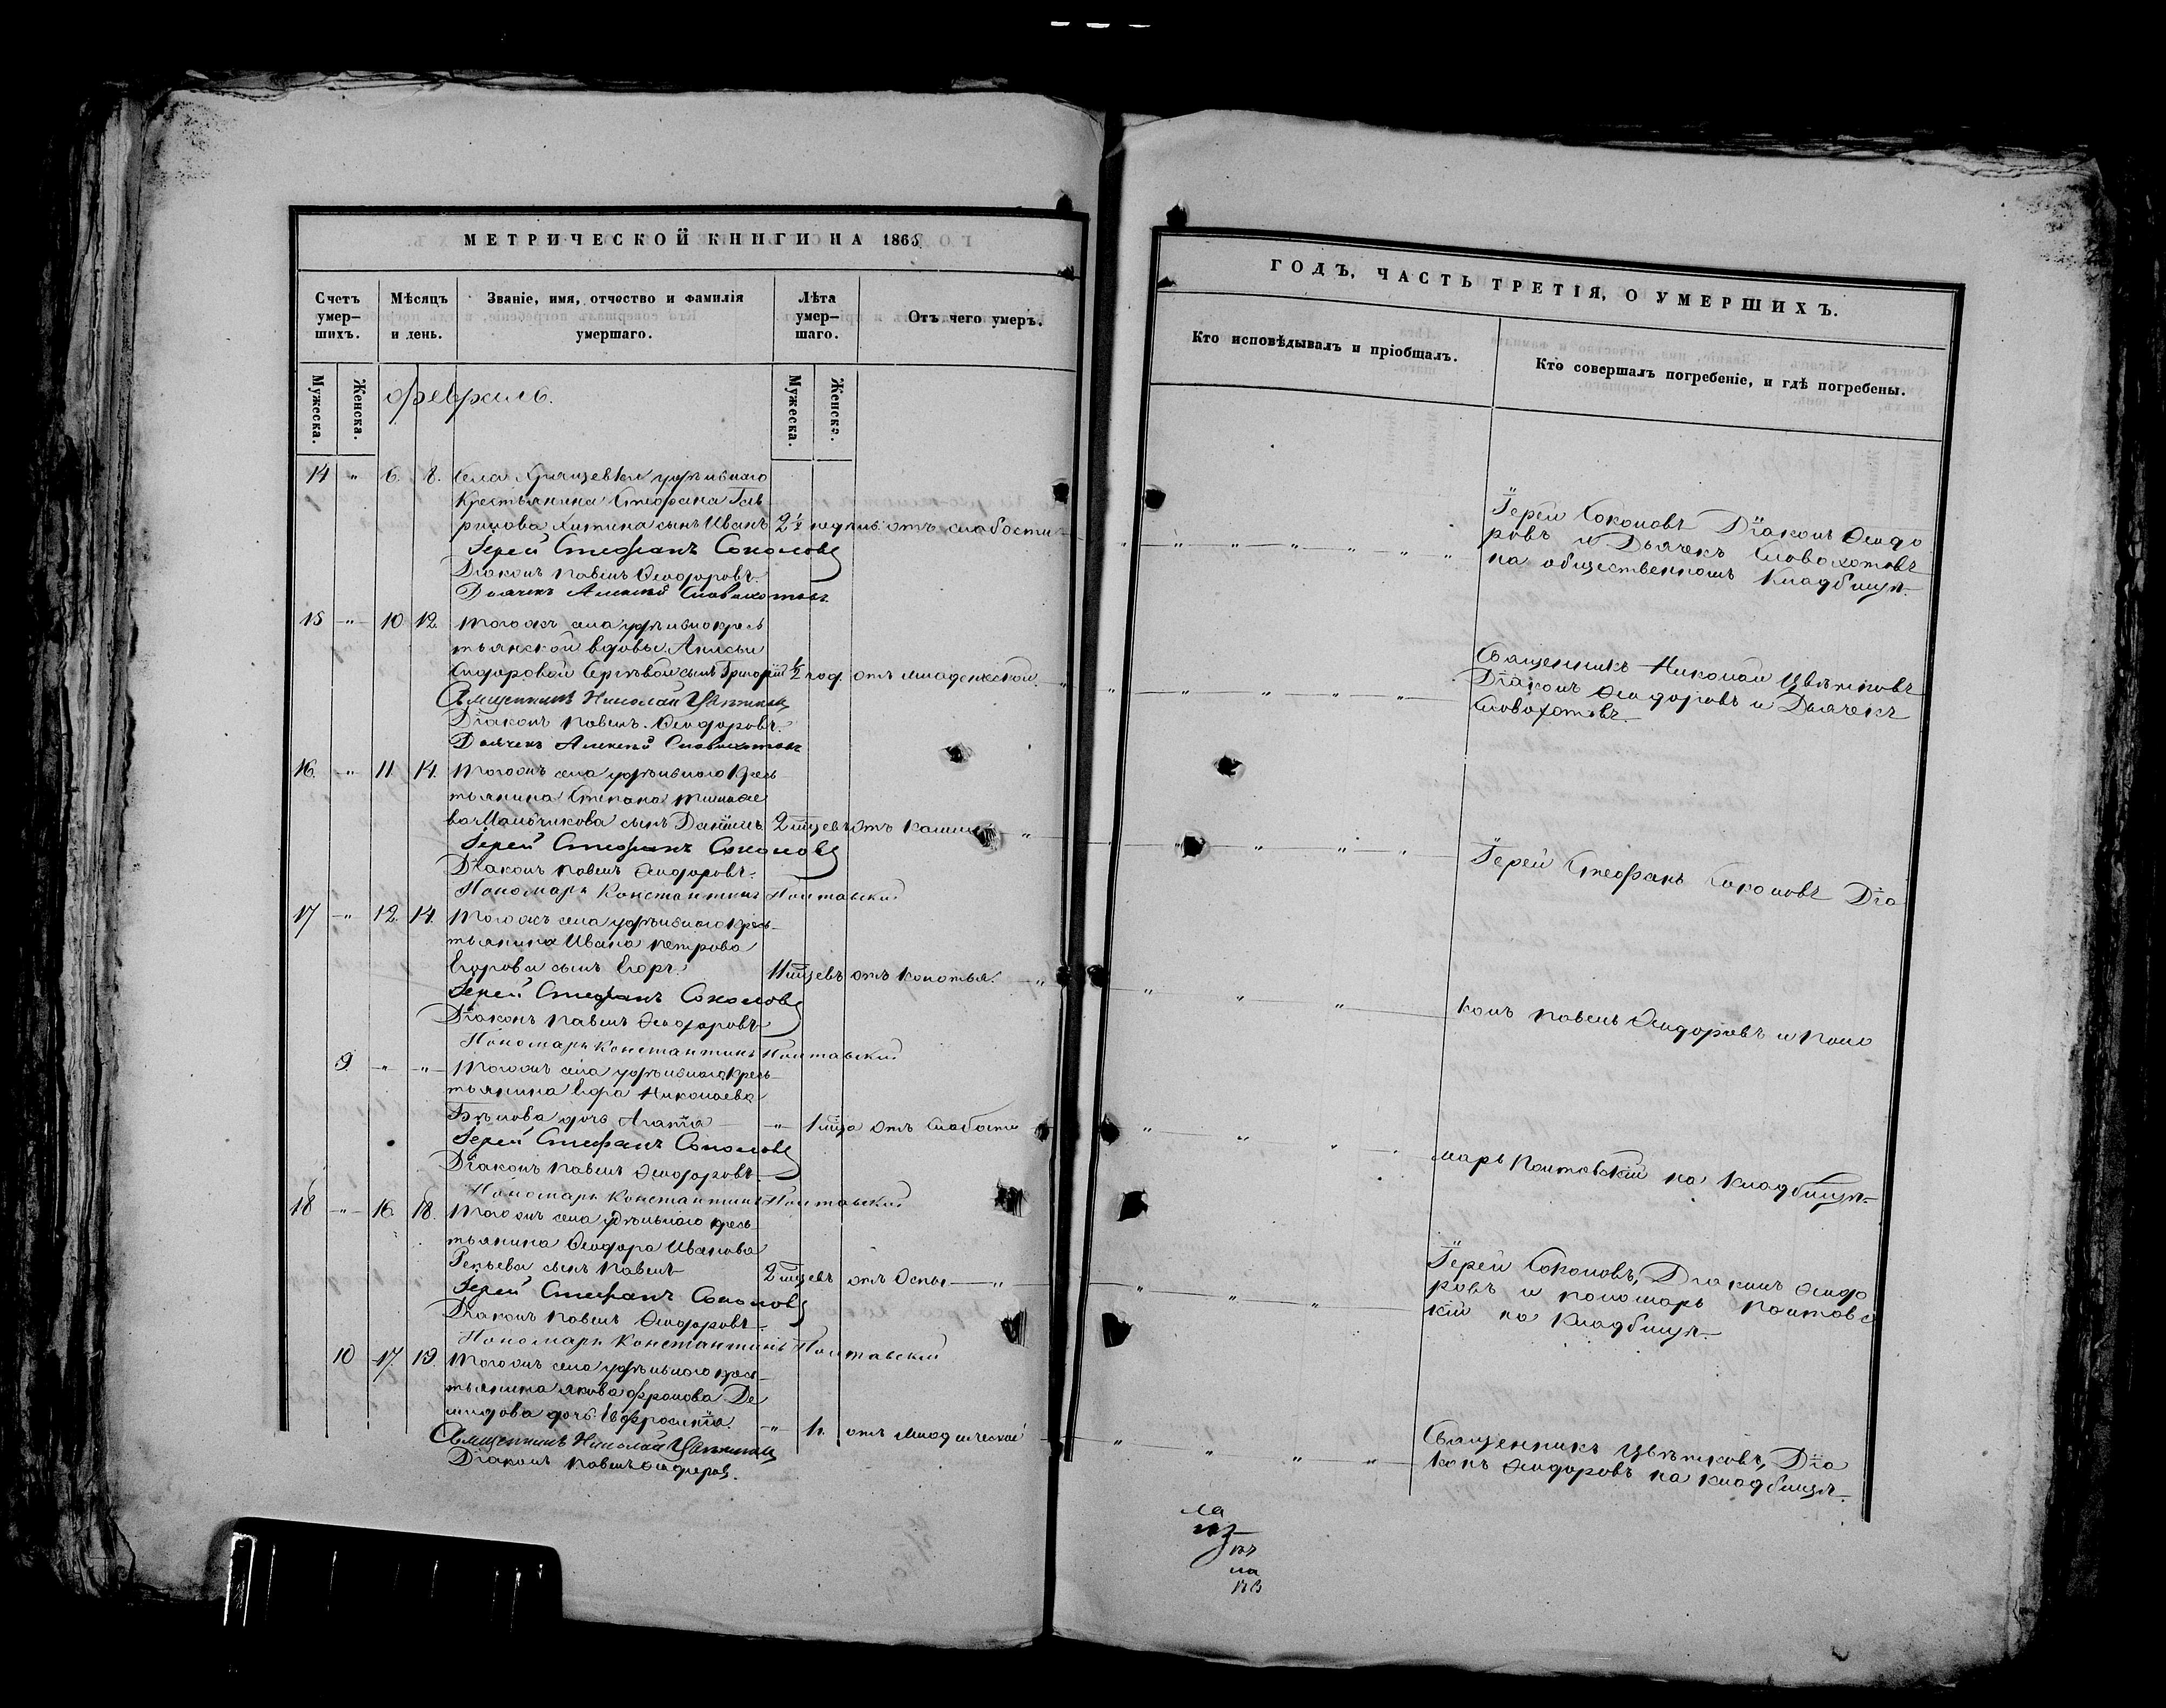 МЕТРИЧЕСКОЙ КНИГИ НА 1865
Счетъ умер-шихъ.
Мѣсяцъ и день.
Званіе, имя, отчество и фамилія умершаго.
Лѣта умер-шаго.
Отъ чего умеръ.
Мужеска.
Женска.
Мужеска.
Женска.
Февраль.
14 " 6. 8. Села удѣльнаго
крестьянина Стефана Гав
рилова сынъ Иванъ 2½ недѣль отъ слабости
Іерей Стефанъ Соколовъ
Діаконъ Павелъ Ѳеодоровъ.
Дьячекъ Алексѣй Словохотовъ
15 " 10 12. Тогожъ села удѣльно крес
тьянской вдовы Анисьи
Сидоровой сынъ Григорій ½ год. отъ младенской
Священникъ Николай Цвѣтковъ
Діаконъ Павелъ Ѳеодоровъ.
Дьячекъ Алексѣй Словохотовъ
16. " 11 14. Тогожъ села удѣльнаго крес
тьянина Степана Тимофе
ва Мальчикова сынъ Даніилъ 2 мцевъ отъ кашля "
Іерей Стефанъ Соколовъ
Діаконъ Павелъ Ѳеодоровъ.
Пономарь Константинъ Полтавскій
17 " 12. 14. Тогожъ села удѣльнаго крес
тьянина Ивана Петрова
Егорова сынъ Егоръ. 11 мцевъ отъ колотья. "
Іерей Стефанъ Соколовъ
Діаконъ Павелъ Ѳеодоровъ
Пономарь Константинъ Полтавскій
9 " " Тогожъ села удѣльнаго крес
тьянина Николаева
Бѣлова дочь Агапія " 1 мца отъ слабости
Іерей Стефанъ Соколовъ
Діаконъ Павелъ Ѳеодоровъ
Пономарь Константинъ Полтавскій
18 " 16. 18. Тогожъ села удѣльнаго крес
тьянина Ѳеодора Иванова
Репьева сынъ Павелъ 2 мцевъ отъ оспы "
Іерей Стефанъ Соколовъ
Діаконъ Павелъ Ѳеодоровъ
Пономарь Константинъ Полтавскій
10 17. 19. Тогожъ села удѣльнаго крес
тьянина Якова Фролова Де
мидова дочь Евфросинія. "
отъ младенческой
Священникъ Николай Цвѣтковъ
Діаконъ Павелъ Ѳеодоровъ.
ГОДЪ, ЧАСТЬ ТРЕТІЯ, О УМЕРШИХЪ.
Кто исповѣдывалъ и пріобщалъ.
Кто совершалъ погребеніе, и гдѣ погребены.
Іерей Соколовъ Діаконъ Ѳеодо
ровъ и Дьячекъ Словохотовъ
на общественномъ кладбищѣ.
Священникъ Николай Цвѣтковъ
Діаконъ Ѳеодоровъ и Дьячекъ
Словохотовъ.
Іерей Стефанъ Соколовъ Діа
конъ Павелъ Ѳеодоровъ и Поно
марь Полтавскій на кладбищѣ
Іерей Соколовъ, Діаконъ Ѳеодо
ровъ и пономарь Полтавс
кій на кладбищѣ.
Священникъ Цвѣтковъ, Діа
конъ Ѳеодоровъ на кладбищѣ.